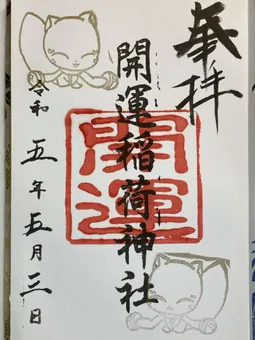 奉拝
開運稲荷神社
開運
令和五年五月三日